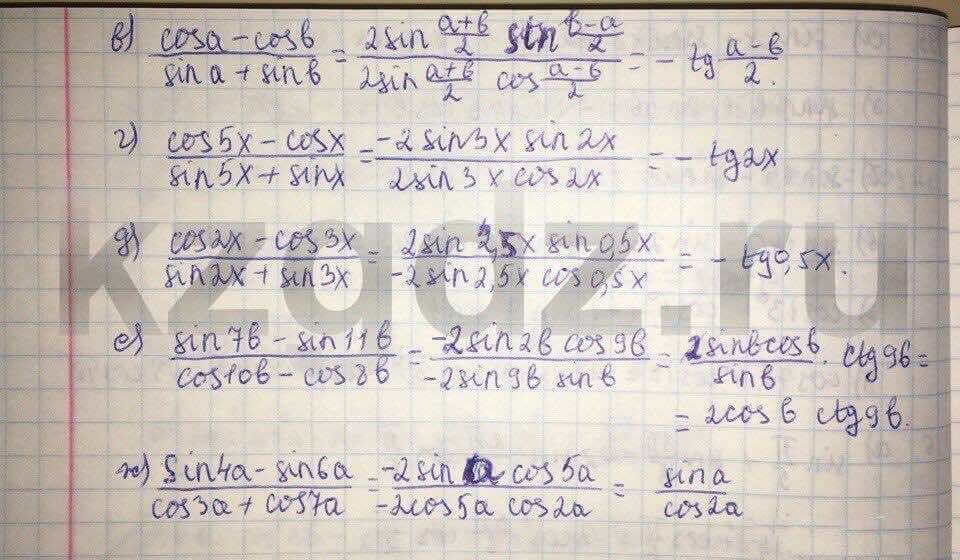 в) (cosa - cosb)/(sina + sinb) = (2sin (a+b)/2 sin (b-a)/2)/(2sin (a+b)/2 cos (a-b)/2) = - tg (a-b)/2.
г) (cos5x - cosx)/(sin5x + sinx) = (-2sin3x sin2x)/(2sin3x cos2x) = - tg2x
д) (cos2x - cos3x)/(sin2x + sin3x) = (2sin2,5x sin0,5x)/(-2sin2,5x cos0,5x) = - tg0,5x.
е) (sin7b - sin11b)/(cos10b - cos8b) = (-2sin2b cos9b)/(-2sin9b sinb) = (2sinbcosb)/(sinb) · ctg9b =
= 2cosb ctg9b.
ж) (sin4a - sin6a)/(cos3a + cos7a) = (-2sina cos5a)/(-2cos5a cos2a) = (sina)/(cos2a)
kzadz.ru